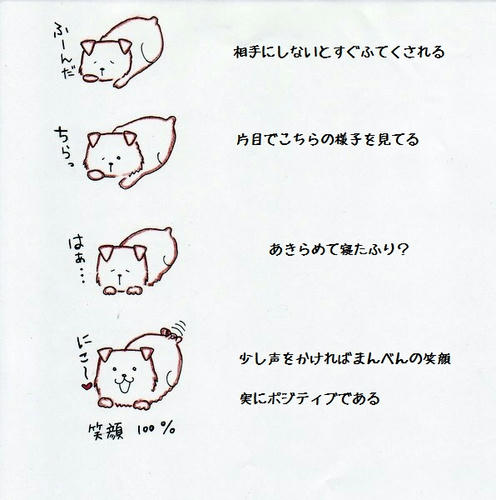 ふーんだ
相手にしないとすぐふてくされる
ちらっ
片目でこちらの様子を見てる
はぁ…
あきらめて寝たふり？
にこ〜♥
少し声をかければまんべんの笑顔
実にポジティブである
笑顔 100%